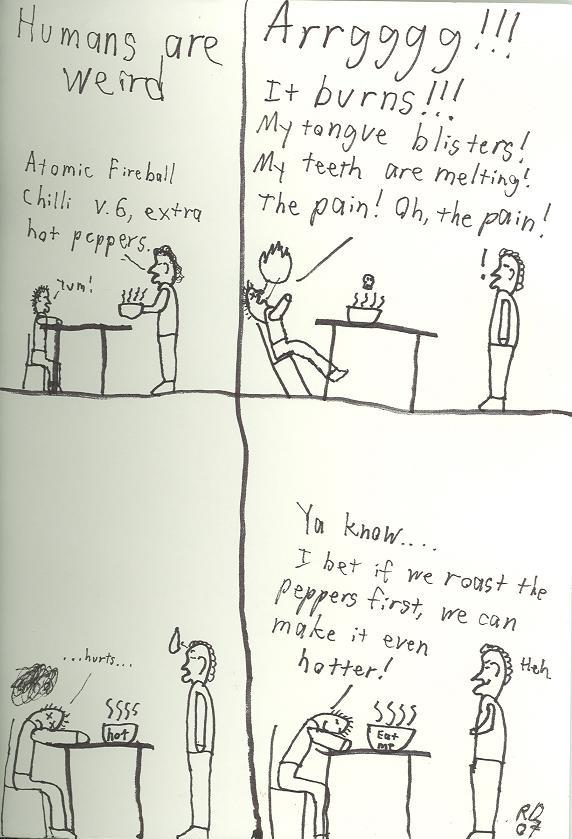 Humans are
weird
Atomic Fireball
Chilli v.6, extra
hot peppers.
Yum!
Arrgggg!!!
It burns!!!
My tongue blisters!
My teeth are melting!
The pain! Oh, the pain!
!
...hurts...
hot
Ya know....
I bet if we roast the
peppers first, we can
make it even
hotter!
Heh
Eat
me
RD
07